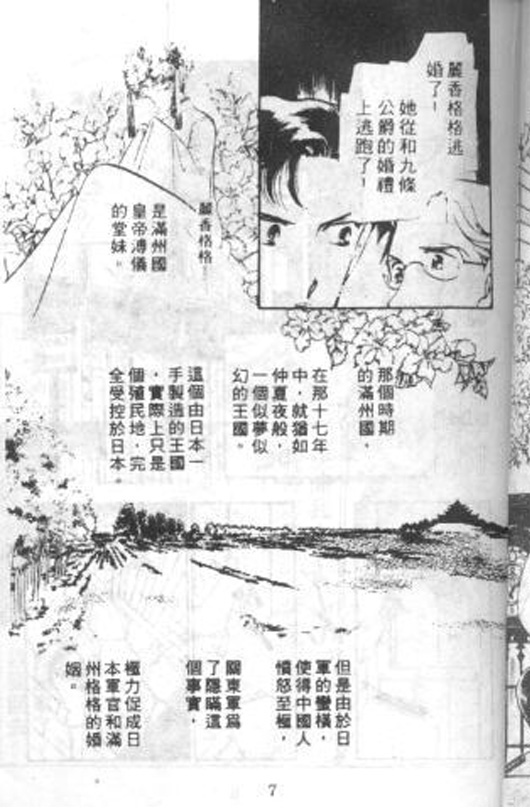 麗香格格逃
婚了！
她從和九條
公爵的婚禮
上逃跑了！
麗香格格——
是滿州國
皇帝溥儀
的堂妹。
那個時期
的滿州國，
在那十七年
中，就猶如
仲夏夜般，
一個似夢似
幻的王國。
這個由日本一
手製造的王國
，實際上只是
個殖民地，完
全受控於日本。
但是由於日
軍的蠻橫，
使得中國人
憤怒至極，
關東軍爲
了隱瞞這
個事實，
極力促成日
本軍官和滿
州格格的婚
姻。
7